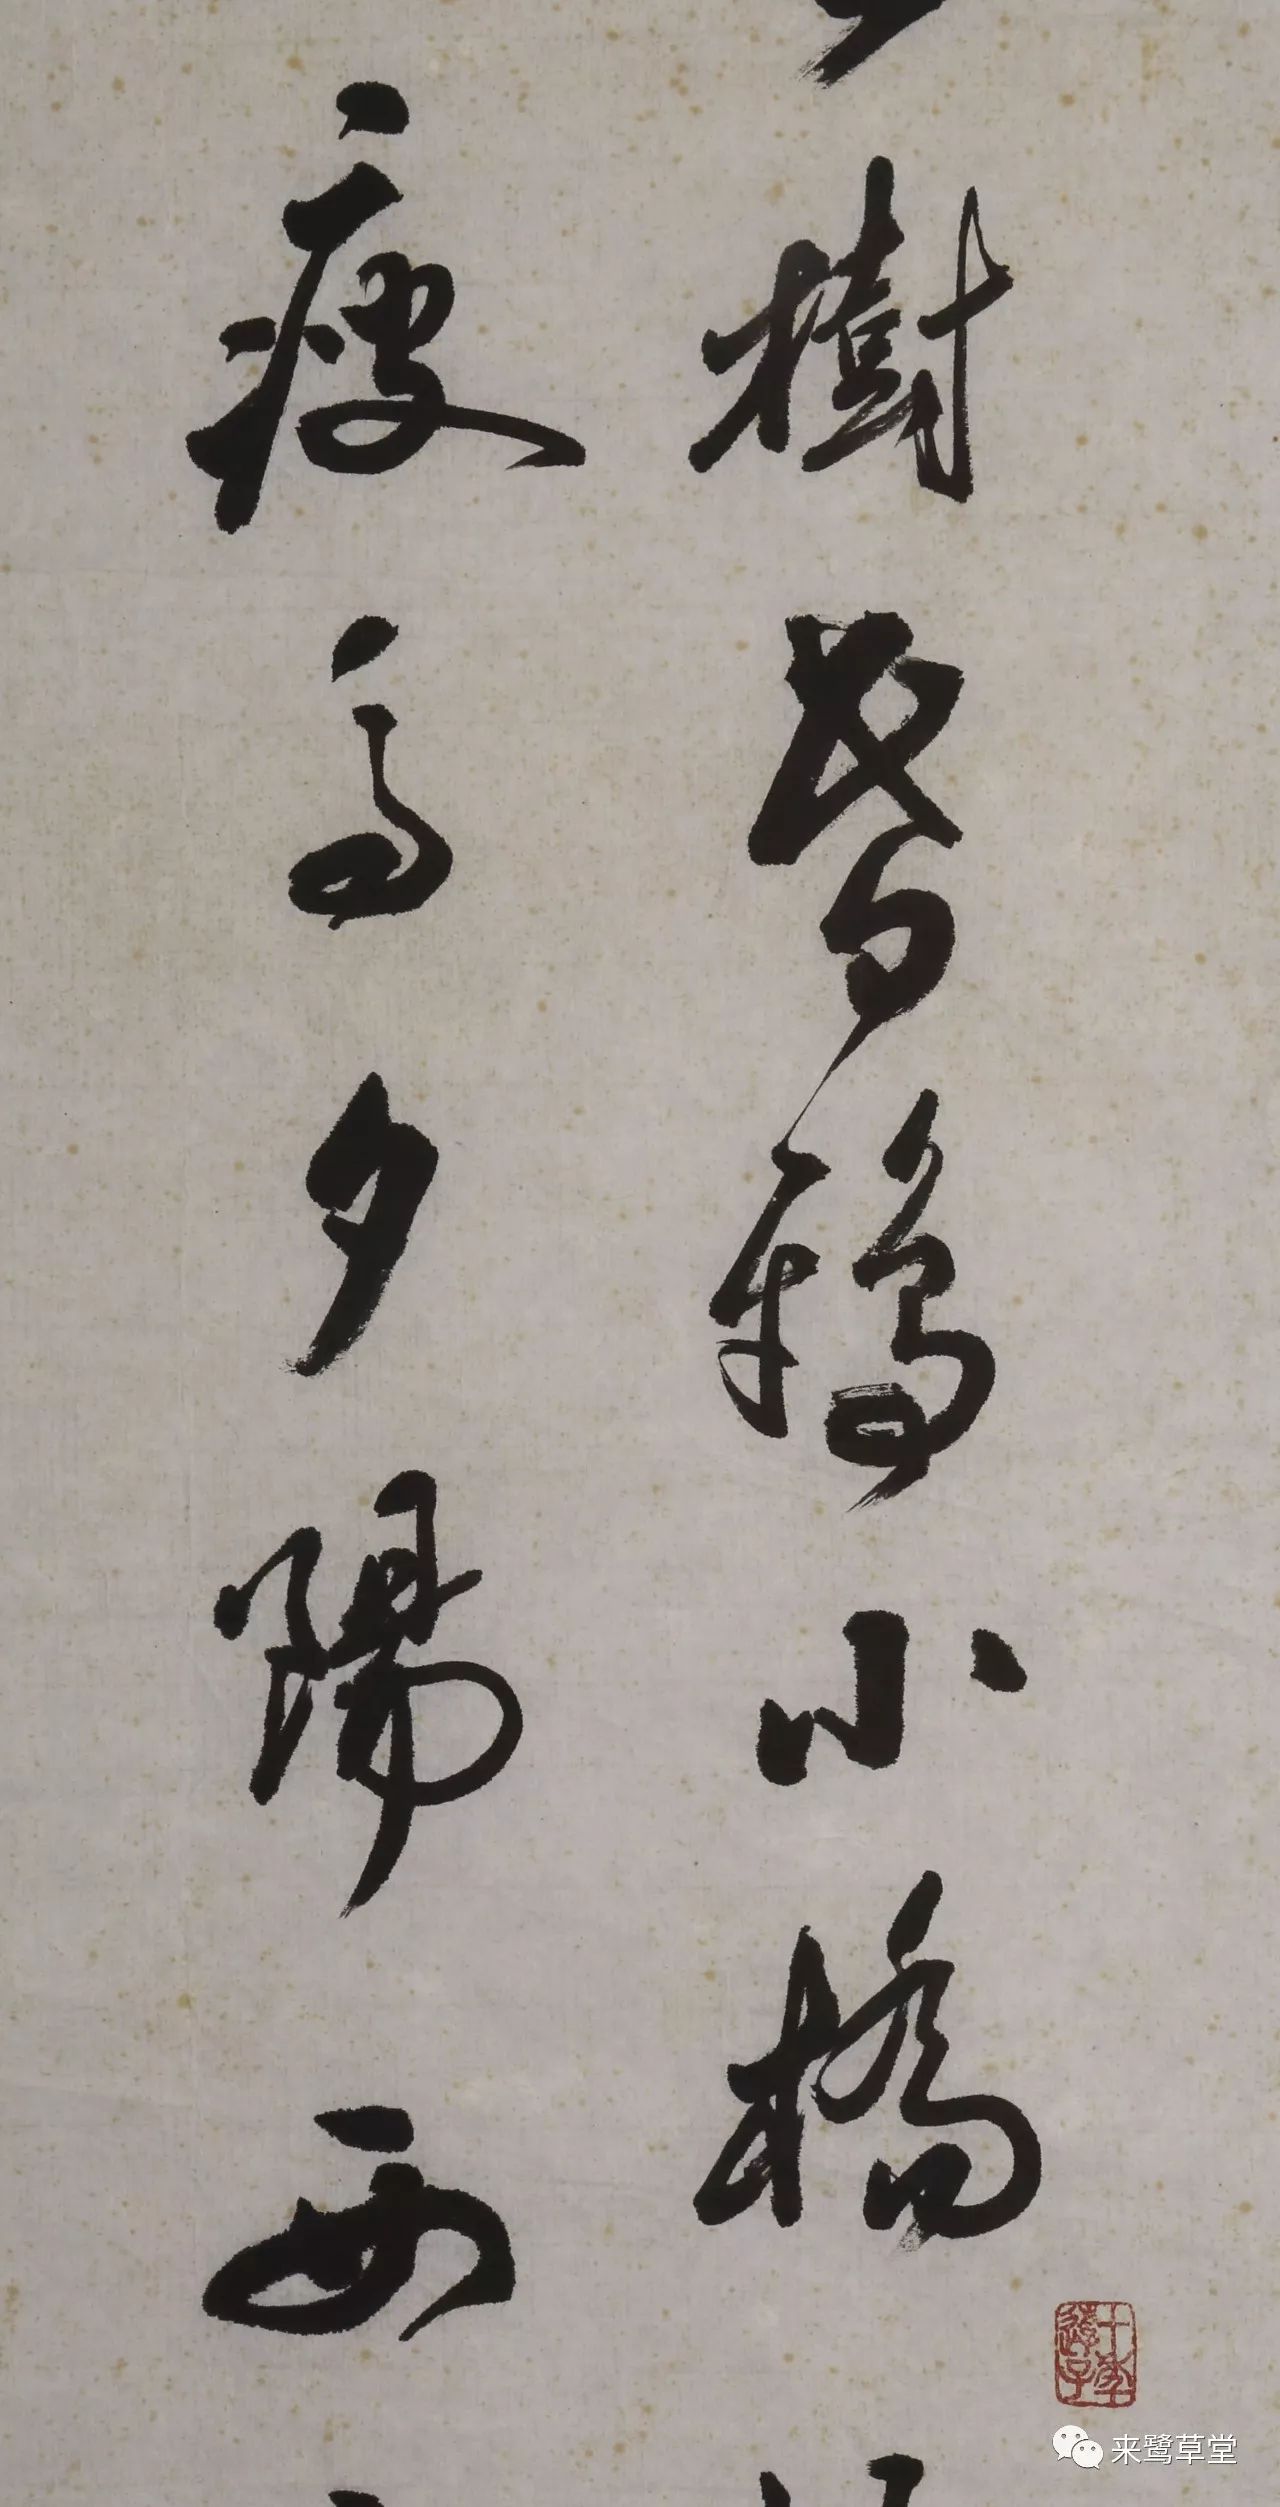 樹昏鴉小橋
瘦馬夕陽西
来鹭草堂